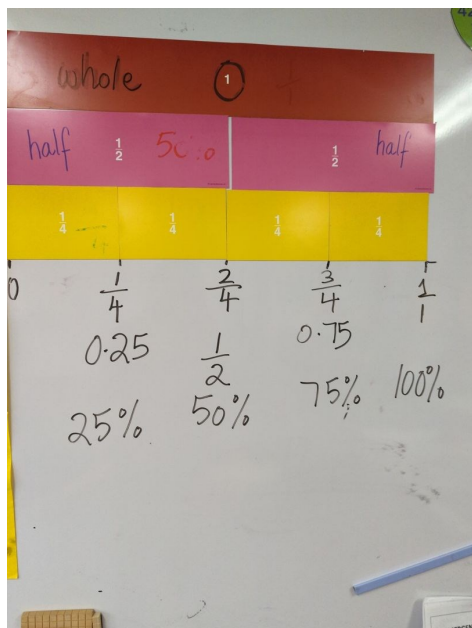 whole 1
half 1/2 50% 1/2 half
1/4 1/4 1/4 1/4
0 1/4 2/4 3/4 1/1
0.25 1/2 0.75
25% 50% 75% 100%